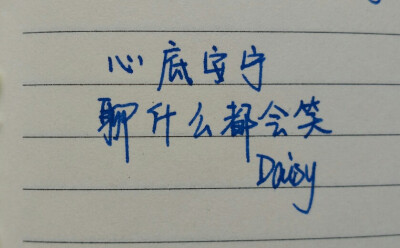 心底安宁
聊什么都会笑
Daisy